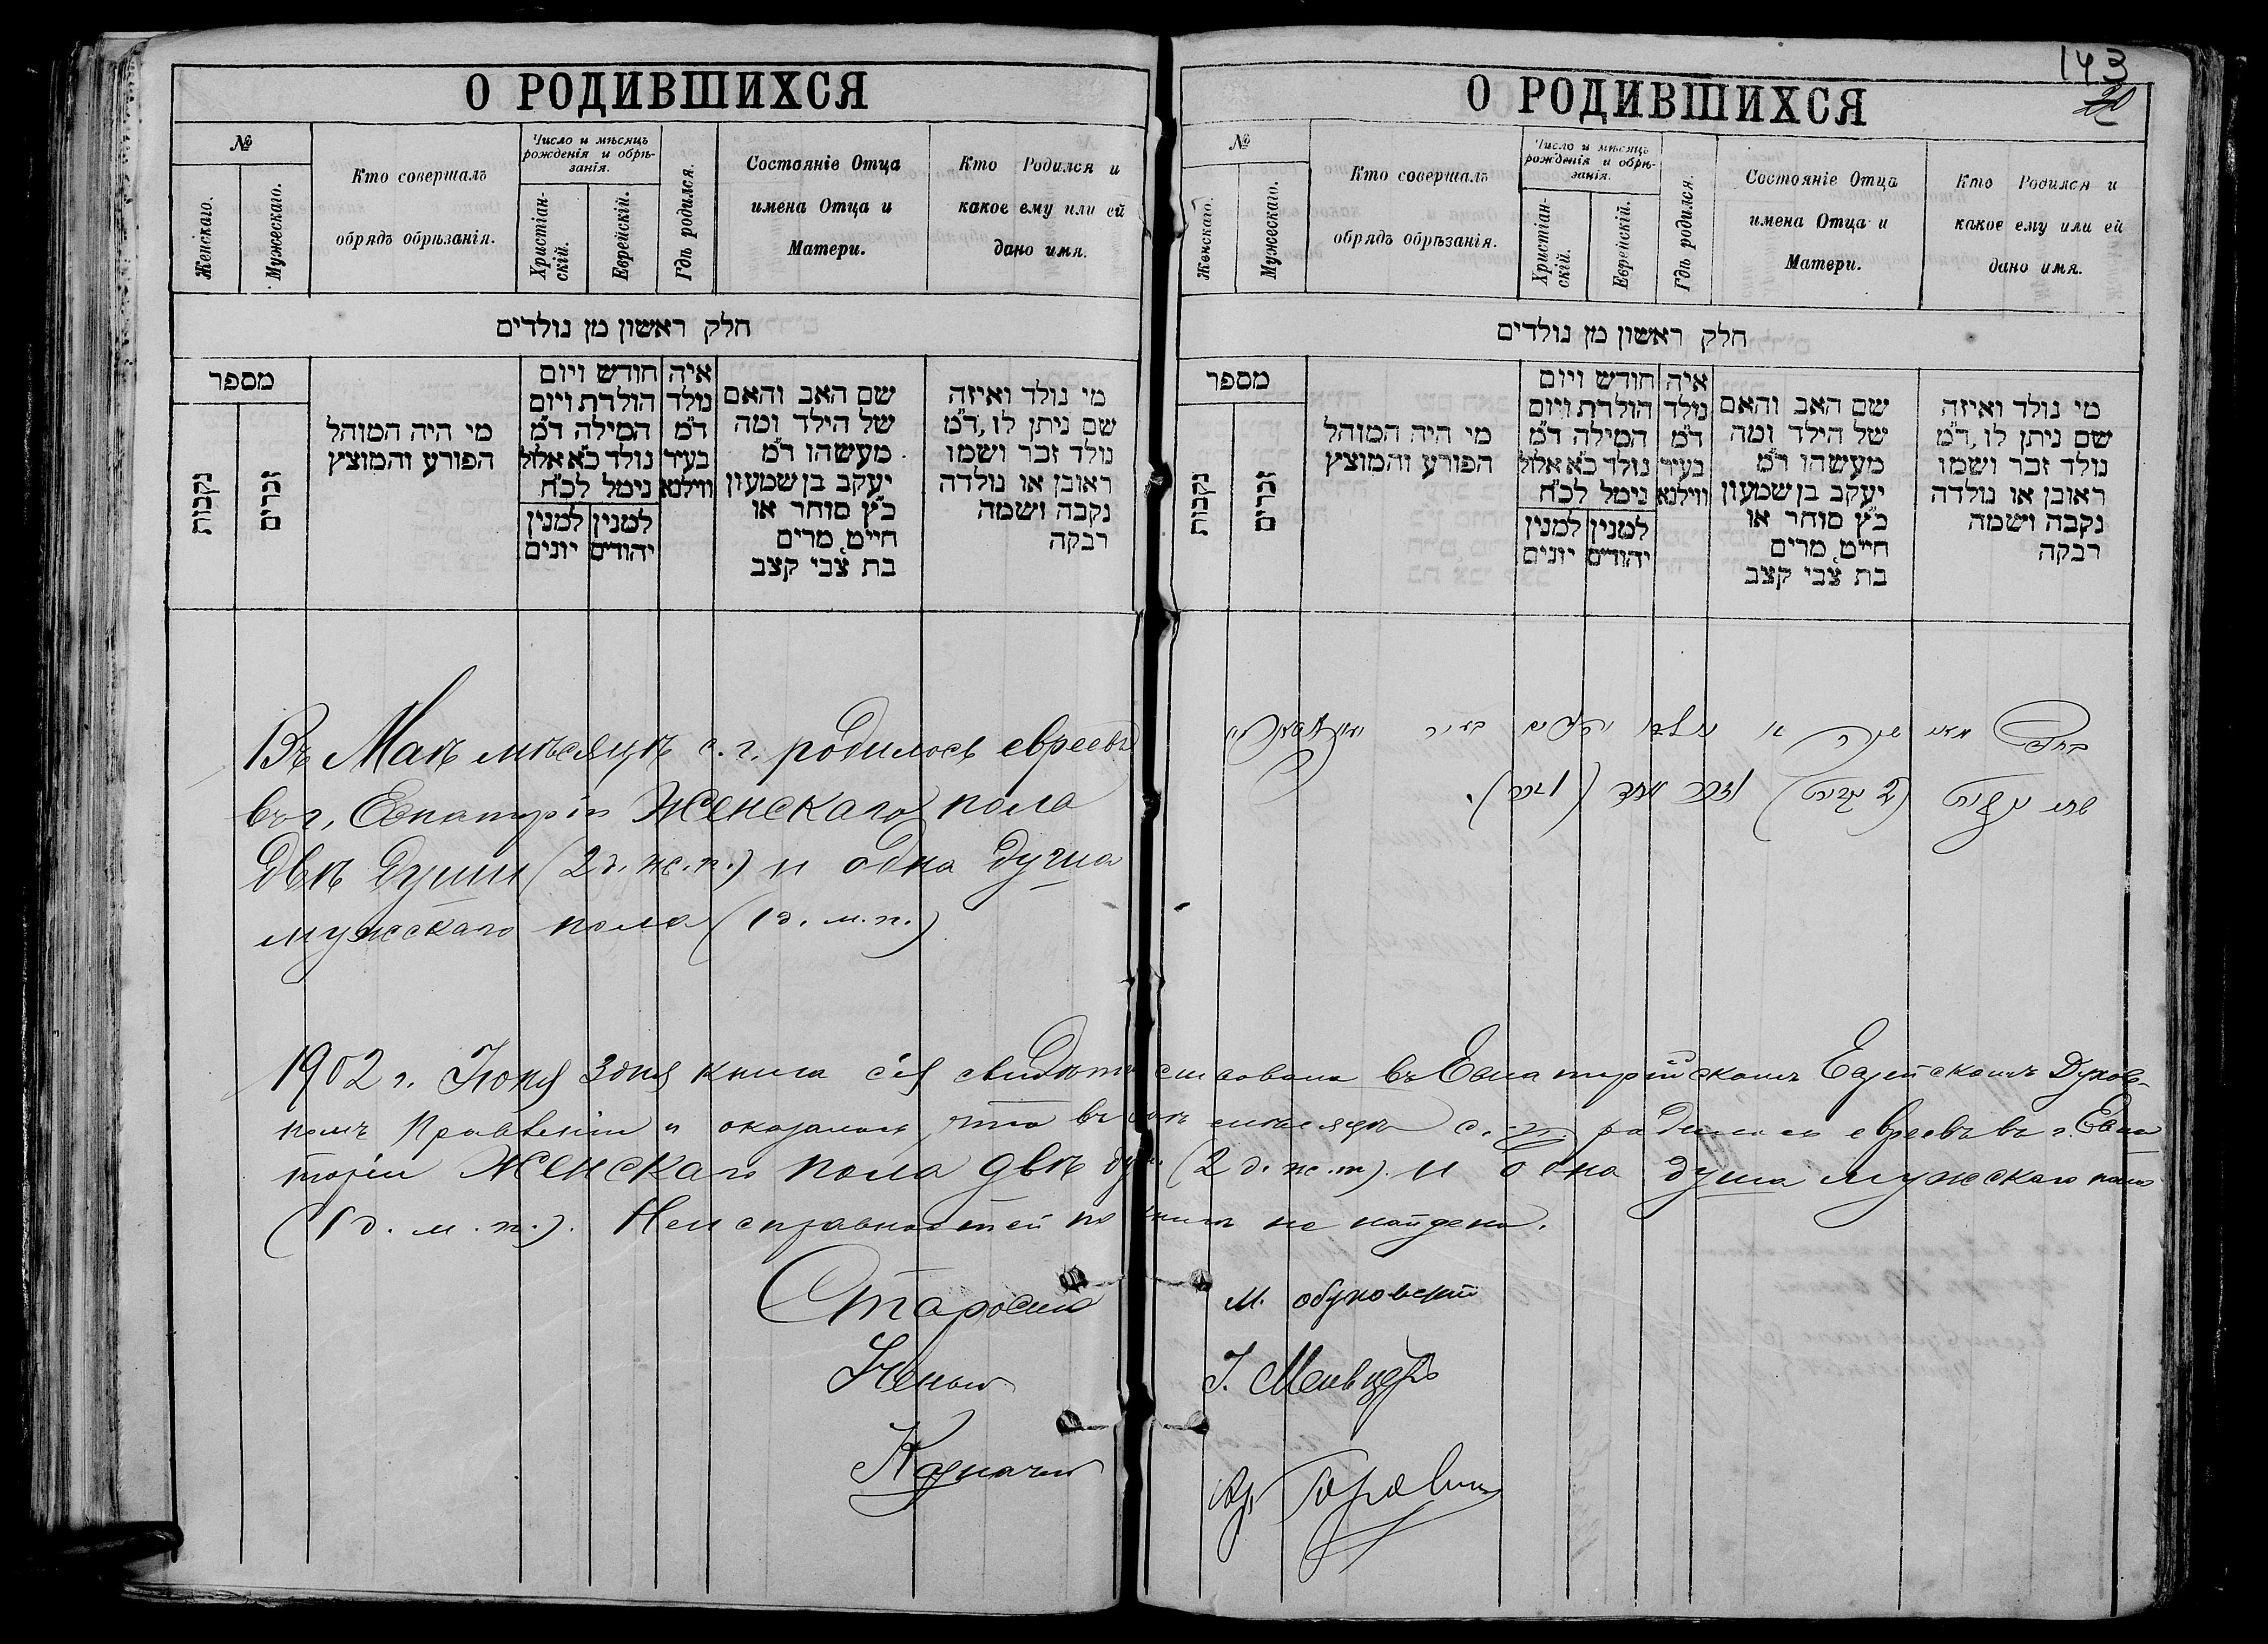 О РОДИВШИХСЯ
№
Женскаго.
Мужескаго.
Кто совершалъ
обрядъ обрѣзанія.
Число и мѣсяцъ
рожденія и обрѣ-
занія.
Христіан-
скій.
Еврейскій.
Гдѣ родился.
Состояніе Отца
имена Отца и
Матери.
Кто Родился и
какое ему или ей
дано имя.
חלק ראשון מן נולדים
מספר
נקבות
זכרים
מי היה המוהל
הפורע והמוצץ
חודש ויום
הולדת ויום
המילה ד״מ
נולד כ״א אלול
נימל לכ״ח
למנין יהודים
למנין יונים
איה
נולד
ד״מ
בעיר
ווילנא
שם האב והאם
של הילד ומה
מעשהו ד״מ
יעקב בן שמעון
כ״ץ סוחר או
חייט, מרים
בת צבי קצב
מי נולד ואיזה
שם ניתן לו, ד״מ
נולד זכר ושמו
ראובן או נולדה
נקבה ושמה
רבקה
Въ Маѣ мѣсяцѣ с. г. родилось евреевъ
въ г. Евпаторіи Женскаго пола
двѣ души (2 д. ж. п.) и одна душа
мужскаго пола (1 д. м. п.)
143
О РОДИВШИХСЯ
№
Женскаго.
Мужескаго.
Кто совершалъ
обрядъ обрѣзанія.
Число и мѣсяцъ
рожденія и обрѣ-
занія.
Христіан-
скій.
Еврейскій.
Гдѣ родился.
Состояніе Отца
имена Отца и
Матери.
Кто Родился и
какое ему или ей
дано имя.
חלק ראשון מן נולדים
מספר
נקבות
זכרים
מי היה המוהל
הפורע והמוצץ
חודש ויום
הולדת ויום
המילה ד״מ
נולד כ״א אלול
נימל לכ״ח
למנין יהודים
למנין יונים
איה
נולד
ד״מ
בעיר
ווילנא
שם האב והאם
של הילד ומה
מעשהו ד״מ
יעקב בן שמעון
כ״ץ סוחר או
חייט, מרים
בת צבי קצב
מי נולד ואיזה
שם ניתן לו, ד״מ
נולד זכר ושמו
ראובן או נולדה
נקבה ושמה
רבקה
1902 г. Іюня 3 дня книга сія свидѣтельствована въ Евпаторійскомъ Еврейскомъ Духов-
номъ Правленіи и оказалось что въ Маѣ мѣсяцѣ с. г. родилось евреевъ въ г. Евпа
торіи Женскаго пола двѣ души (2 д. ж. п.) и одна душа мужскаго пола
(1 д. м. п.). Неисправностей по книгѣ не найдено.
Староста М. Обуховскій
Ученый І. Мельцеръ
Казначей